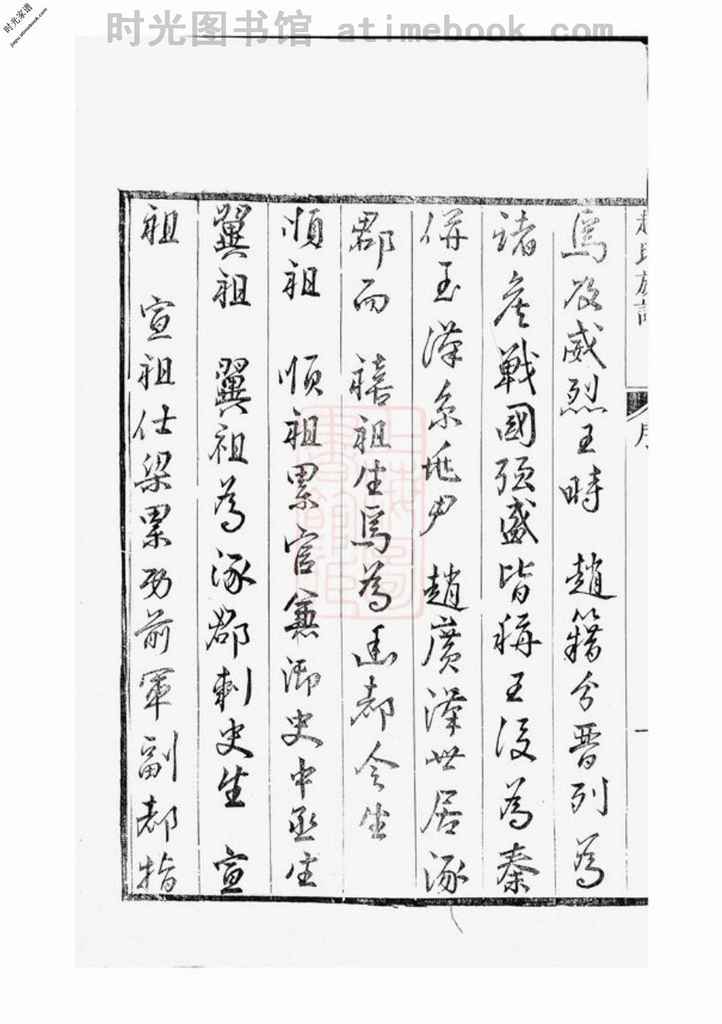 时光图书馆 atimebook.com
时光家谱
jiapu.atimebook.com
趙氏族譜
序
一
焉及威烈王時 趙籍分晉列為
諸侯戰國强盛皆稱王後為秦
併至漢京兆尹 趙廣漢世居涿
郡而 禧祖生焉為幽都令生
順祖 順祖累官兼御史中丞生
翼祖 翼祖為涿郡刺史生 宣
祖 宣祖仕梁累功前軍副都指